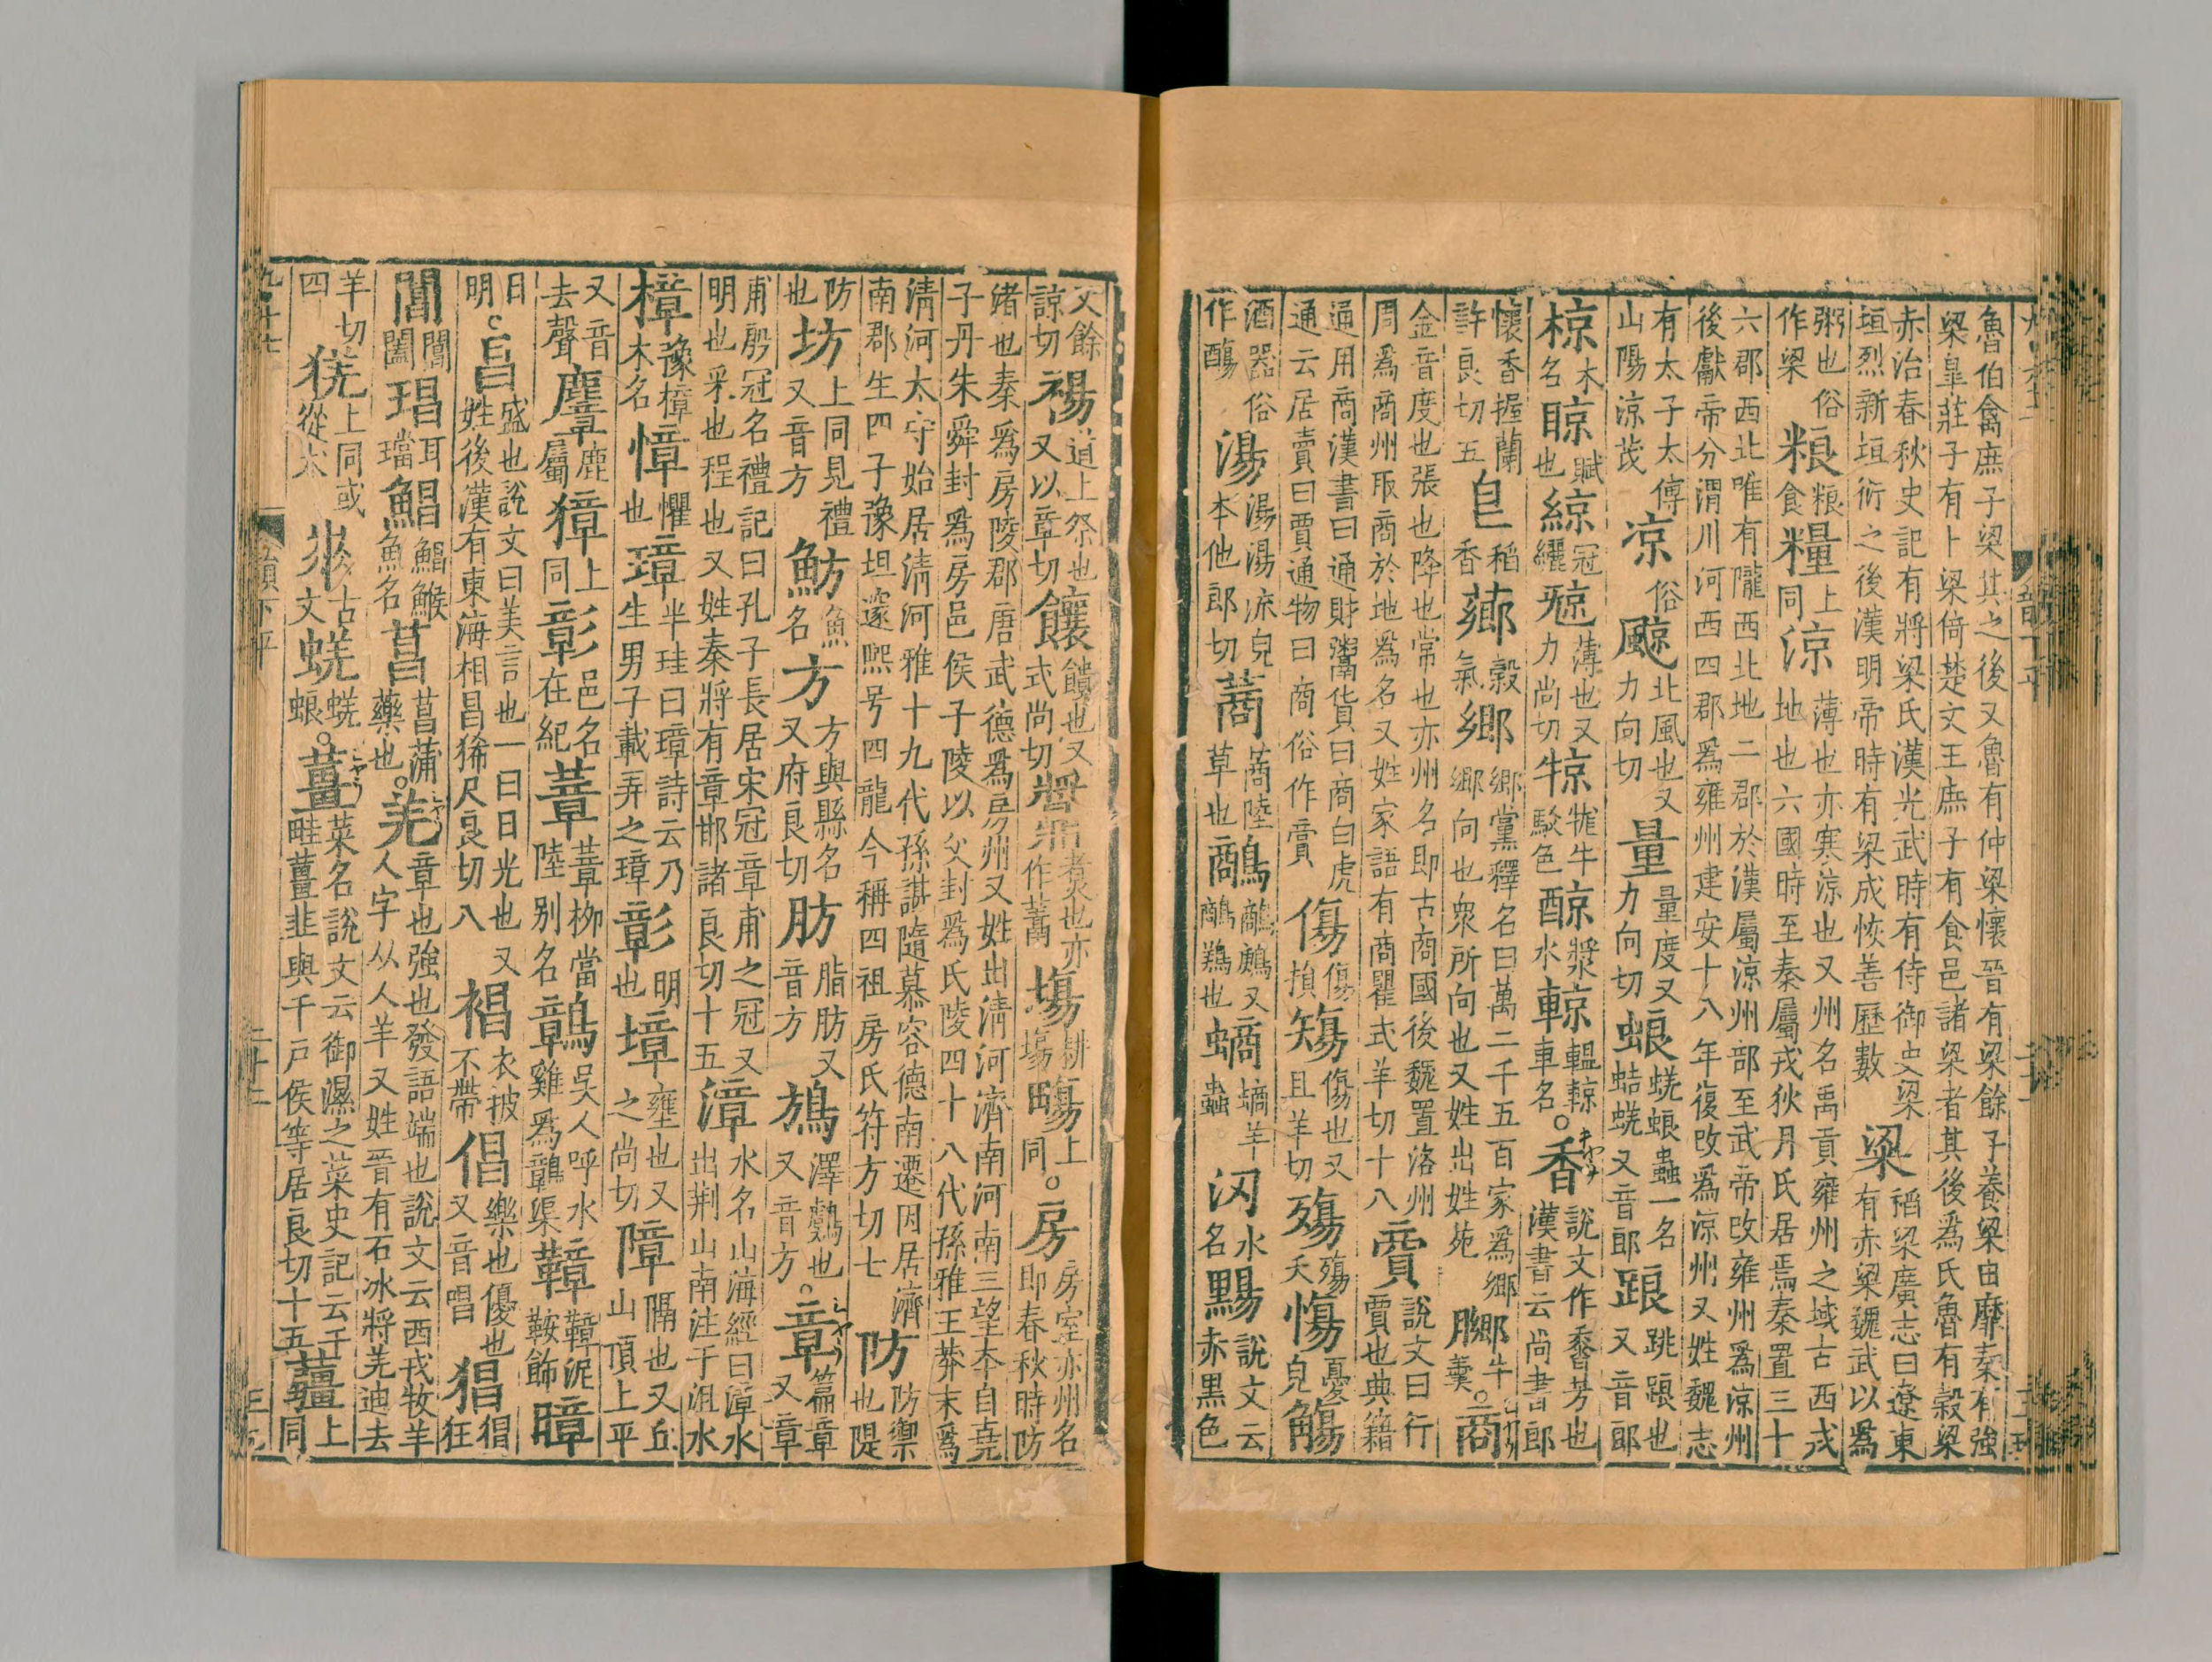 魯伯禽庶子梁其之後又魯有仲梁懷晉有梁餘子養梁由靡秦有強梁皐莊子有卜梁倚楚文王庶子有食邑諸梁者其後爲氏魯有穀梁
赤治春秋史記有將梁氏漢光武時有侍御史梁垣烈新垣衍之後漢明帝時有梁成恢善歷數梁稻梁廣志曰遼東有赤梁魏武以爲
粥也俗作梁粮粮食糧上同涼薄也亦寒涼也又州名禹貢雍州之域古西戎地也六國時至秦屬戎狄月氏居焉秦置三十
六郡西北唯有隴西北地二郡於漢屬涼州部至武帝攺雍州爲涼州後獻帝分渭川河西四郡爲雍州建安十八年復攺爲涼州又姓魏志
有太子太傅山陽涼茂凉俗飇北風也又力向切量量度又力向切蜋蜣蜋蟲一名蛣蜣又音郎踉跳踉也又音郎
椋木名䝶賦也綡冠纚㼐薄也又力尚切㹁牻牛駮色䣼漿水輬轀輬車名○香キヤウ說文作𪏽芳也漢書云尚書郎
懷香握蘭許良切五皀稻香薌穀氣鄉鄉黨釋名曰萬二千五百家爲鄉鄉向也衆所向也又姓出姓苑膷牛羹○商
金音度也張也降也常也亦州名即古商國後魏置洛州周爲商州取商於地爲名又姓家語有商瞿式羊切十八賷說文曰行賈也典籍
通用商漢書曰通財鬻貨曰商白虎通云居賣曰賈通物曰商俗作賷傷傷損𥏫傷也又且羊切殤殤夭慯憂皃觴
酒器俗作䬕湯湯湯流皃本他郎切蔏蔏陸草也鷮鷸又鷞也螪螪羊蟲㲽水名䵮說文云赤黑色
又餘諒切禓道上祭也又以章切饟饋也又式尚切䵼煑也亦作䵼塲耕塲畼上同○房房室亦州名即春秋時防
渚也秦爲房陵郡唐武德爲房州又姓出清河濟南河南三望本自堯子丹朱舜封爲房邑侯子陵以父封爲氏陵四十八代孫雅王莽末爲
清河太守始居清河雅十九代孫諶隨慕容德南遷因居濟南郡生四子豫坦邃熙号四龍今稱四祖房氏符方切七防防禦也隄
防也坊上同見禮又音方魴魚名方方與縣名又府良切肪脂肪又音方鴋澤鸆也又音方○章シヤウ篇章又章
甫殷冠名禮記曰孔子長居宋冠章甫之冠又明也采也程也又姓秦將有章邯諸良切十五漳水名山海經曰漳水出荆山南注于沮水
樟豫樟木名慞懼也璋半珪曰璋詩云乃生男子載弄之璋彰明也墇壅也又之尚切障隔也又丘山頂上平
又音去聲麞鹿屬獐上同鄣邑名在紀葦葦柳當陸别名鷤吳人呼水雞爲鷤渠鞾鞾泥鞍飾暲
日明○昌盛也說文曰美言也一曰日光也又姓後漢有東海相昌狶尺良切八裮衣披不帶倡樂也優也又音唱猖猖狂
閶閶闔琩耳璫鯧鯧鯸魚名菖菖蒲藥也○羌章也強也發語端也說文云西戎牧羊人字从人羊又姓晉有石冰將羌迪去
羊切四㹰上同或從犬𢁛古文蜣蜣蜋○薑菜名說文云御濕之菜史記云千畦薑韭與千戸侯等居良切十五薑上同